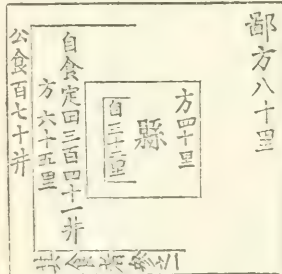 鄙方八十里
方四十里
縣
自三十二里
自食定田三百四十一井
方六十五里
公食百七十井
其食者參之一